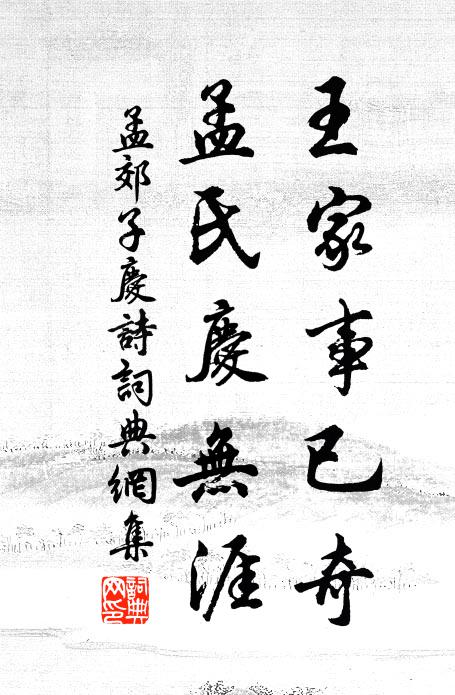 王家事已奇
孟氏慶無涯
孟郊子慶詩詞典網集
詞典網印